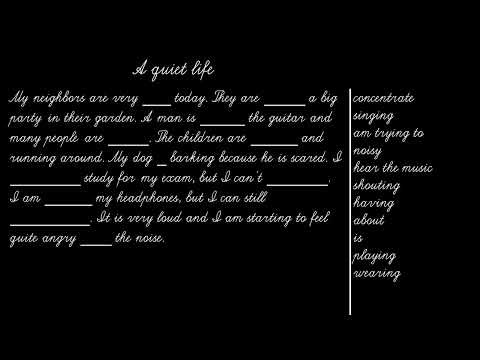 A quiet life
My neighbors are very ____ today. They are ______ a big
party in their garden. A man is ______ the guitar and
many people are ______. The children are _______ and
running around. My dog _ barking because he is scared. I
__________ study for my exam, but I can't _________.
I am _______ my headphones, but I can still
___________. It is very loud and I am starting to feel
quite angry ____ the noise.
concentrate
singing
am trying to
noisy
hear the music
shouting
having
about
is
playing
wearing